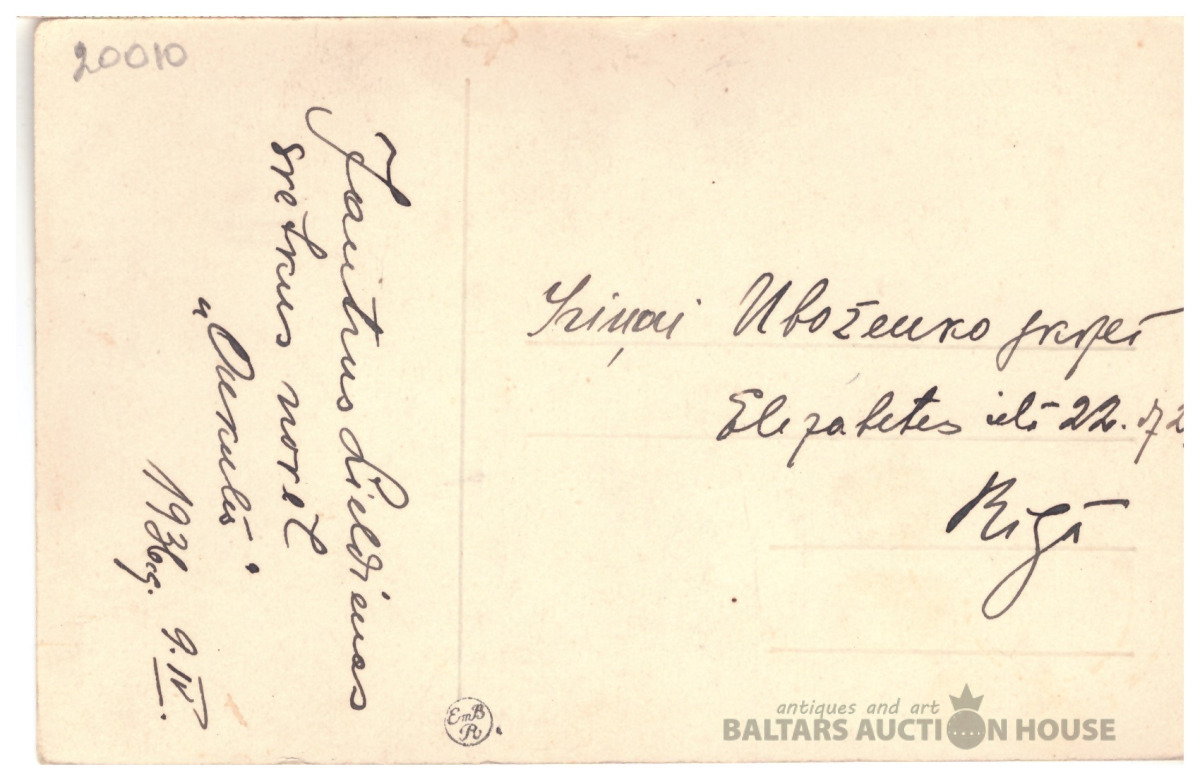 20010
Jautrus Lieldienas
svētkus novēl
"Onkulis".
193
9.IV.
EmB
R
Uboženko
Elizabetes ielā 22. dz 2
Rīgā
antiques and art
BALTARS AUCTION HOUSE